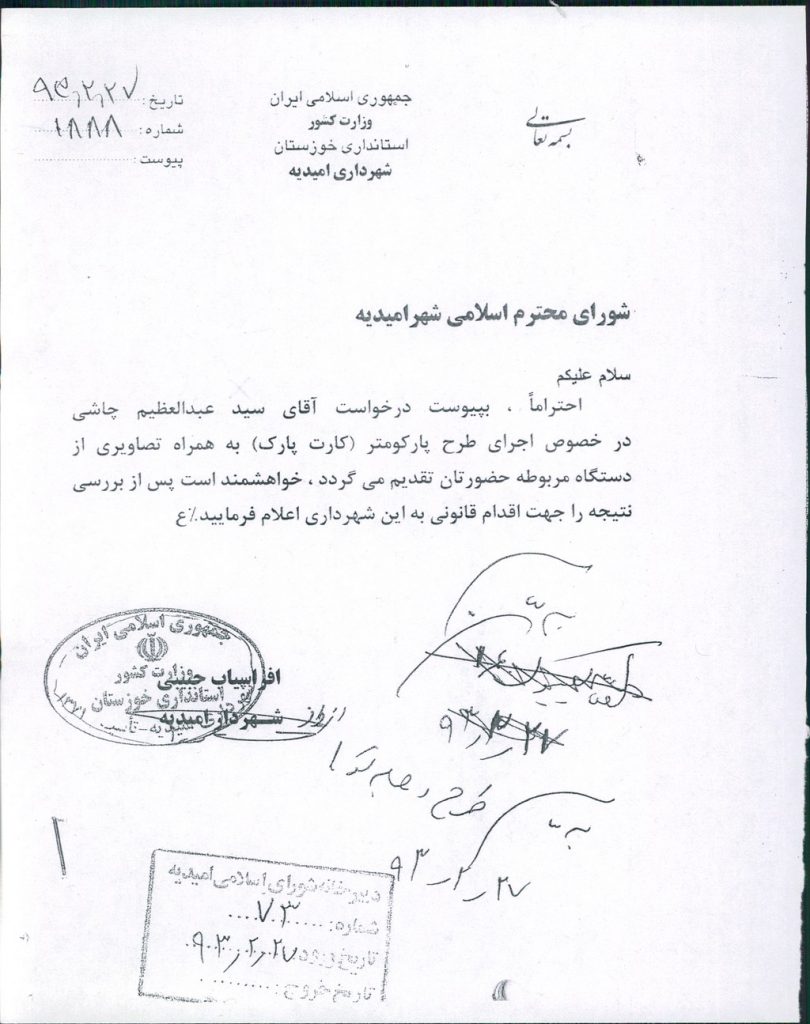 بسمه تعالی
جمهوری اسلامی ایران
وزارت کشور
استانداری خوزستان
شهرداری امیدیه
تاریخ: ۹۳٫۲٫۲۷
شماره: ۱۸۸۸
پیوست:
شورای محترم اسلامی شهرامیدیه
سلام علیکم
احتراماً ، بپیوست درخواست آقای سید عبدالعظیم چاشی
در خصوص اجرای طرح پارکومتر (کارت پارک) به همراه تصاویری از
دستگاه مربوطه حضورتان تقدیم می گردد ، خواهشمند است پس از بررسی
نتیجه را جهت اقدام قانونی به این شهرداری اعلام فرمایید.٪ع
افراسیاب
شهردار امیدیه
جمهوری اسلامی ایران
وزارت کشور
استانداری خوزستان
۹۳٫۲٫۲۷
طرح در جلسه شورا
۹۳٫۲٫۲۷
دبیرخانه شورای اسلامی امیدیه
شماره: ۷۳
تاریخ ورود: ۹۳٫۲٫۲۷
تاریخ خروج: